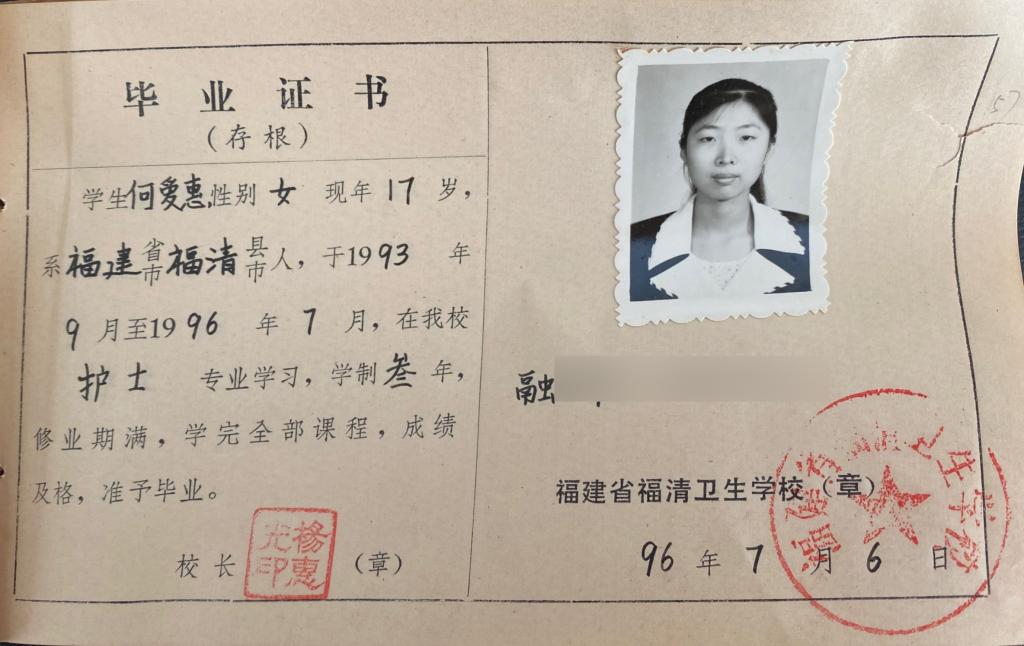 毕业证书
（存根）
学生何爱惠,性别女 现年17岁，
系福建省市福清县市人，于1993年
9月至1996年7月，在我校
护士 专业学习，学制叁年，
修业期满，学完全部课程，成绩
及格，准予毕业。
校长 （章）
楊惠光印
57
融
福建省福清卫生学校（章）
96年7月6日
福建省福清卫生学校